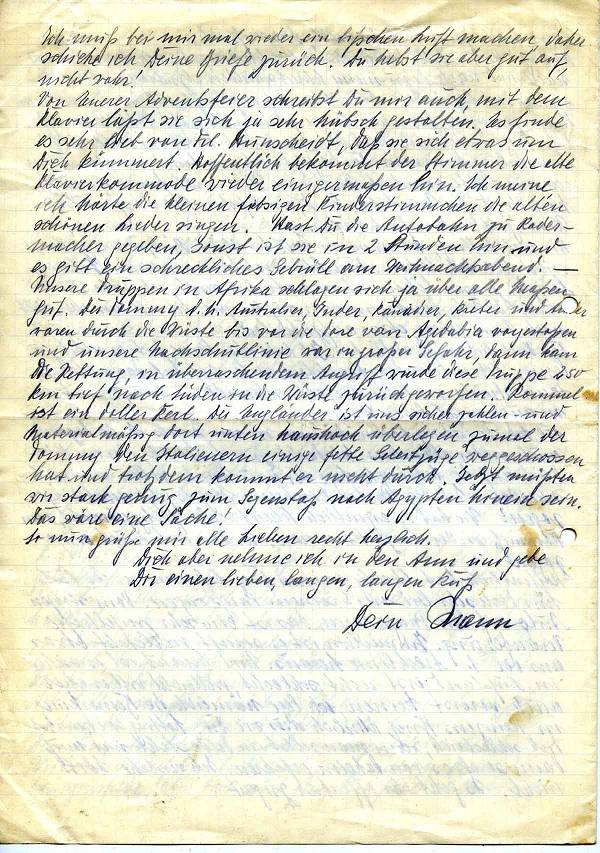 Ich muß bei mir mal wieder ein bißchen Luft machen, daher
schicke ich Deine Briefe zurück. Du hebst sie aber gut auf,
nicht wahr!
Von Eurer Adventsfeier schreibst Du mir auch, mit dem
Klavier läßt sie sich ja sehr hübsch gestalten. Ich finde
es sehr lieb von Frl. Hunscheidt, daß sie sich etwas um
Dich kümmert. Hoffentlich bekommt der Stimmer die alte
Klavierkommode wieder einigermaßen hin. Ich meine
ich hörte die kleinen Kinderstimmchen die alten
schönen Lieder singen. Hast Du die Autobahn zu Rader-
macher gegeben, sonst ist sie in 2 Stunden hin und
es gibt ein schreckliches Gebrüll am Weihnachtsabend. —
Unsere Truppen in Afrika schlagen sich ja über alle Maßen
gut. Der Tommy d.h. Australier, Inder, Kanadier, und
waren durch die Wüste bis vor die Tore von Agedabia vorgestoßen
und unsere Nachschublinie war in großer Gefahr, dann kam
die Rettung, in überraschendem Angriff wurde diese Truppe 250
km tief nach Süden in die Wüste zurückgeworfen. Rommel
ist ein doller Kerl. Der Engländer ist uns sicher zahlen- und
materialmäßig dort unten haushoch überlegen zumal der
Tommy den Italienern einige fette Geleitzüge weggeschossen
hat und trotzdem kommt er nicht durch. Jetzt müßten
wir stark genug zum Gegenstoß nach Ägypten hinein sein.
Das wäre eine Sache!
So nun grüße mir alle Lieben recht herzlich.
Dich aber nehme ich in den Arm und gebe
Dir einen lieben, langen, langen Kuß
Dein Mann